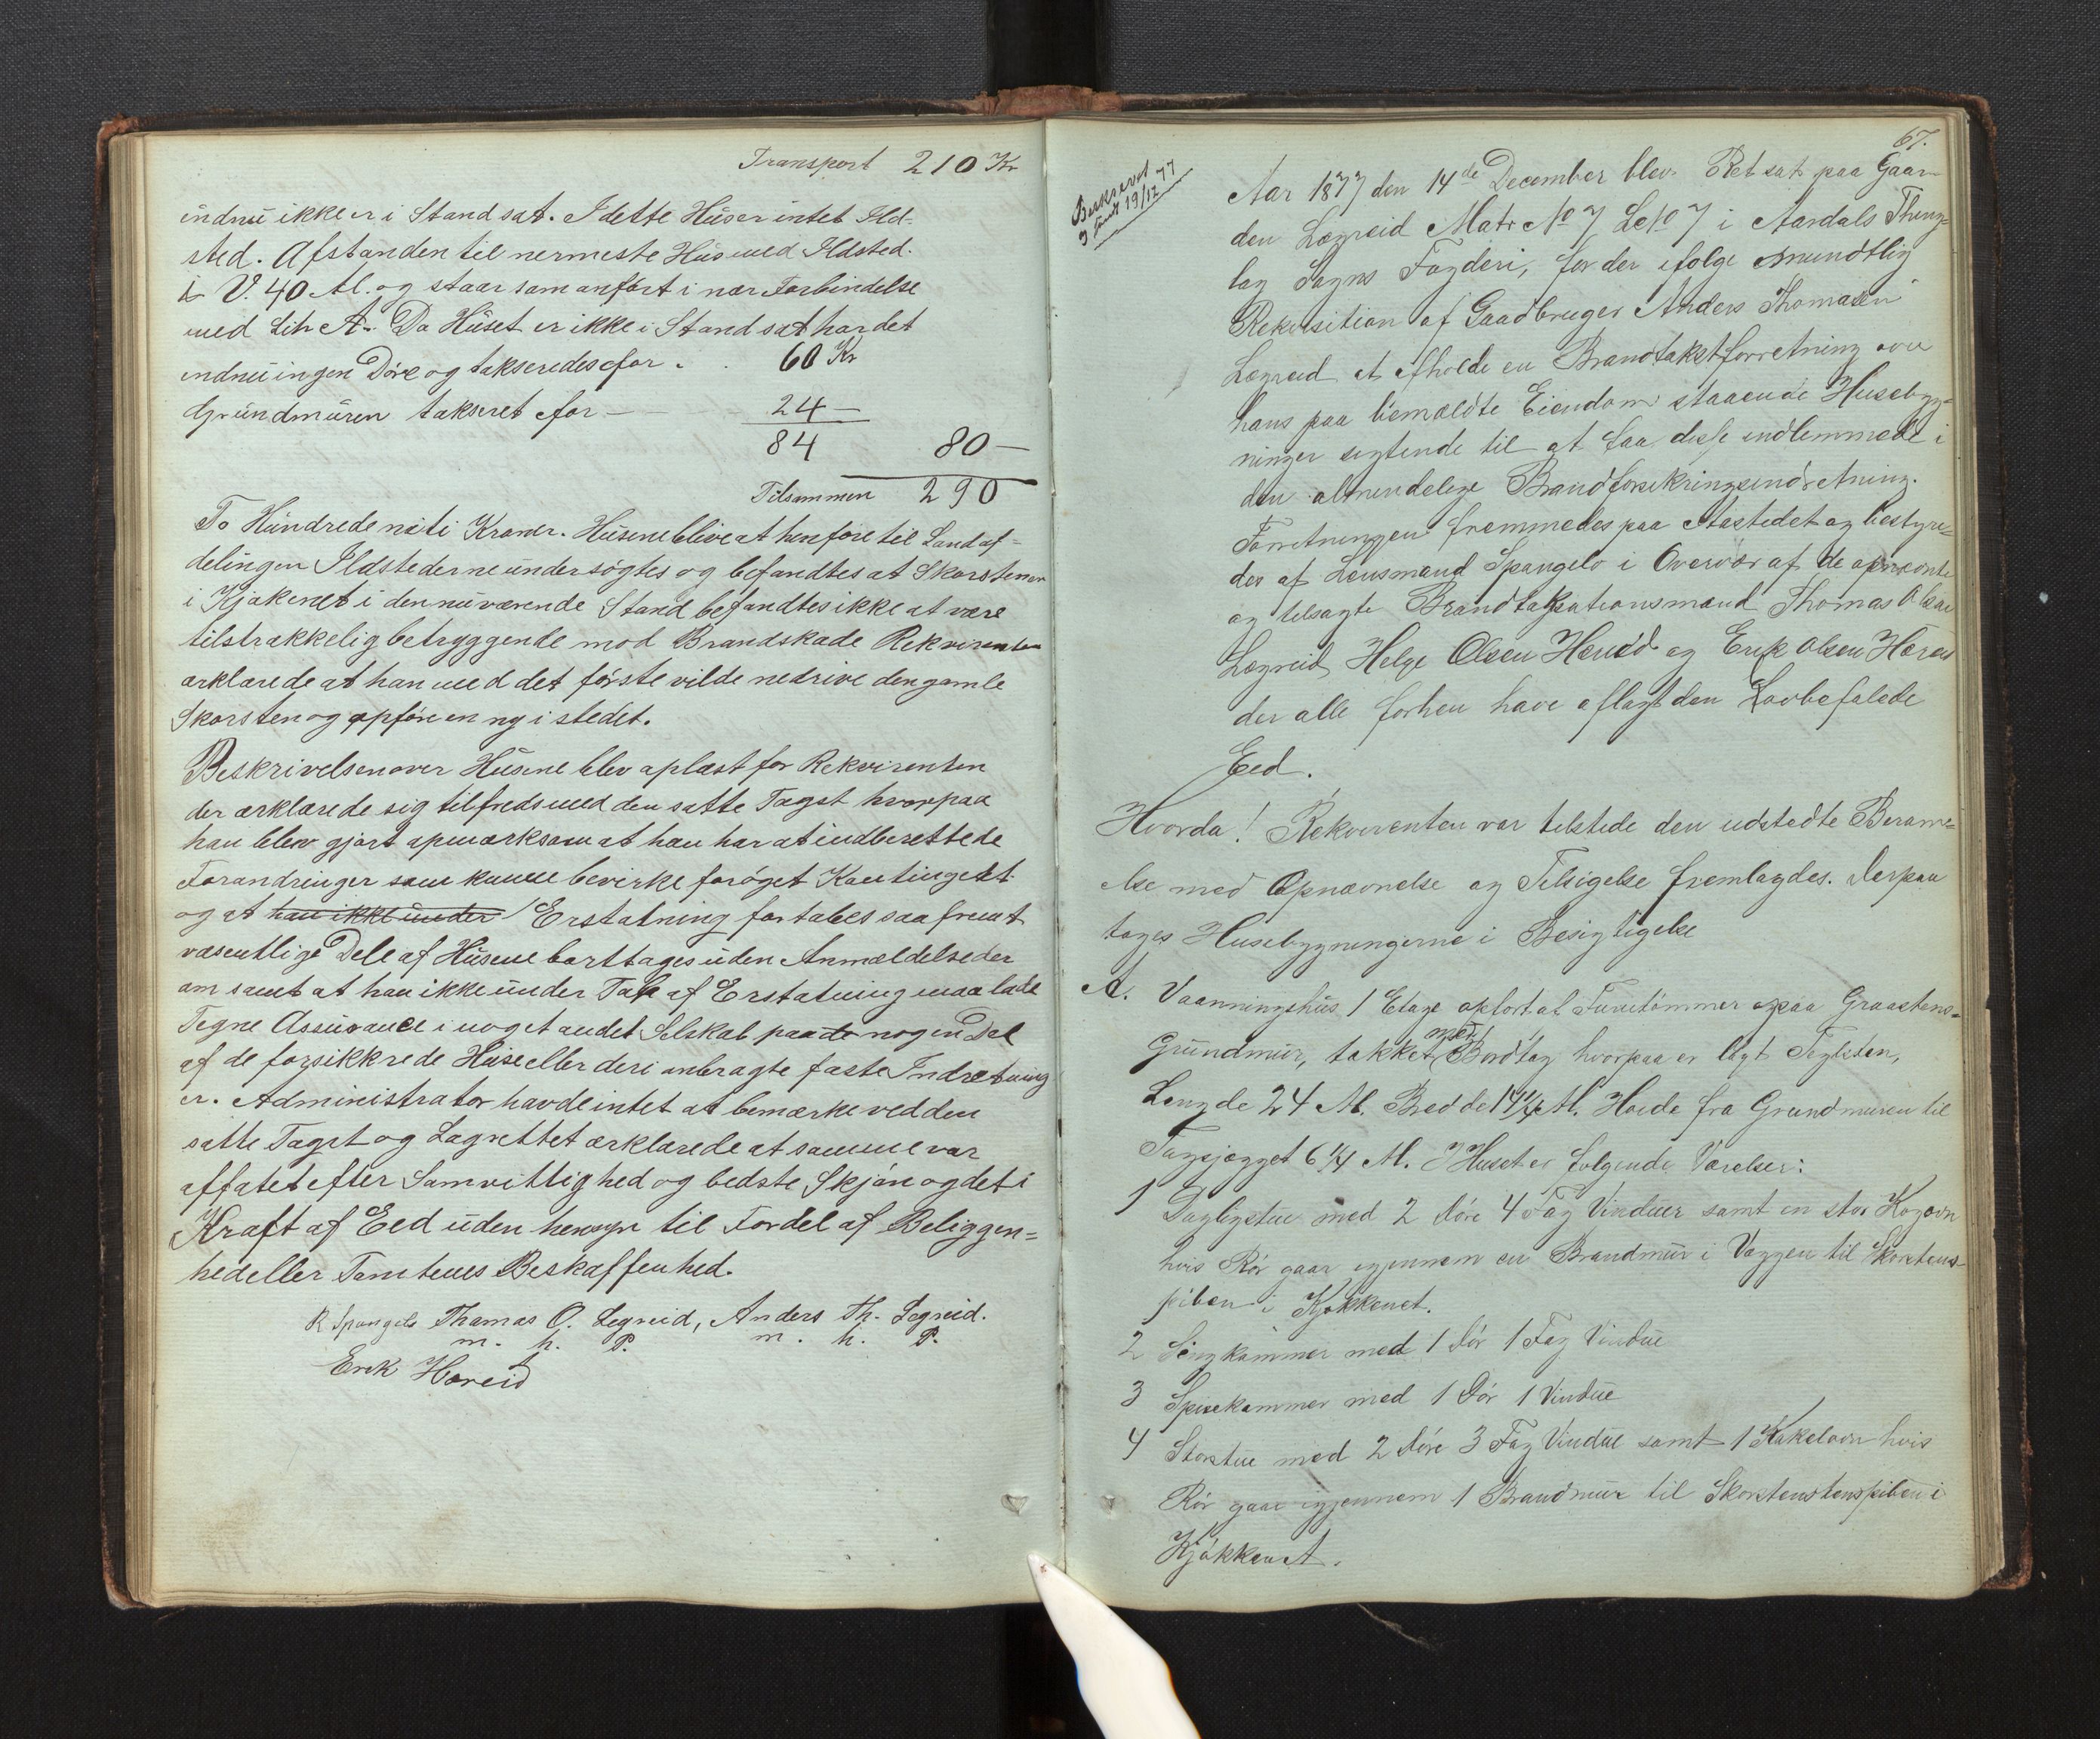 Transport 210 Kr
indnu ikke er i Stand sat. I dette Hus er intet Ild-
sted. Afstanden til nermeste Hus med Ildsted.
i V. 40 Al. og staar som anført i nær Forbindelse
med Litr A. Da Huset er ikke i Stand sat har det
endnu ingen Döre og takseredes for . . 60 Kr
Grundmuren takseret for — 24 —
84 80 —
Tilsammen 290
To Hundrede niti Kroner. Husene blive at henføre til Landaf=
delingen Ildstederne undersøgtes og befandtes at Skorstenen
i Kjøkenet i den nuværende Stand befandtes ikke at være
tilstrækkelig betryggende mod Brandskade Rekvirenten
ærklærede at han med det første vilde nedrive den gamle
Skorsten og opføre en ny i stedet.
Beskrivelsen over Husene blev oplæst for Rekvirenten
der ærklærede sig tilfreds med den satte Tagst hvorpaa
han blev gjort opmærksom at han har at indberette de
Forandringer som kunne bevirke forøget Kontingent
og at han ikke under Erstatning fortabes saa fremt
væsentlige Dele af Husene borttages uden Anmældelse der
om samt at han ikke under Tab af Erstatning maa lade
Tegne Assurance i noget andet Selskab paa de nogen Del
af de forsikkrede Huse eller deri anbragte faste Indretning
er. Administrator havde intet at bemærke ved den
satte Tagst og Lagrettet ærklærede at samme var
affatet efter Samvittighed og bedste Skjøn og det i
Kraft af Eed uden hensyn til Fordel af Beliggen=
hed eller Tomtenes Beskaffenhed.
R Spangelo Thomas O. Legreid, Anders Th. Legreid.
m. h. P. m. h. P.
Erik Hæreid
67.
Beskrevet
19/12 77
Aar 1877 den 14de December blev Ret sat paa Gaar-
den Lægreid Matr No 7 LNo 7 i Aardals Thing=
lag Sogns Fogderi, for der ifølge mundtlig
Rekvisition af Gaadbruger Anders Thomasen
Lægreid at afholde en Brandtakstforretning over
hans paa bemældte Eiendom staaende Husebyg=
ninger sigtende til at faa disse indlemmede i
den almendelige Brandforsikringsindretning.
Forretningen fremmedes paa Aastedet og bestyre=
des af Lensmand Spangelo i Overvær af de opnævnte
og tilsagte Brandtaksationsmænd Thomas Olsen
Lægreid Helge Olsen Hereid og Erik Olsen Hæreid
der alle forhen have aflagt den Lovbefalede
Eed.
Hvorda! Rekvirenten var tilstede den udstedte Berame=
lse med Opnævnelse og Tilsigelse fremlagdes. Derpaa
toges Husebygningerne i Besigtigelse
A. Vaaningshus 1 Etage opført af Furutømmer og paa Graastens=
Grundmur, takket med Bordtag hvorpaa er lagt Teglsten,
Længde 24 Al. Bredde 14 1/4 Al. Høide fra Grundmuren til
Tagsjægget 6 1/4 Al. I Huset er følgende Værelser:
1 Dagligstue med 2 Döre 4 Fag Vinduer samt en stor Kogovn
hvis Rör gaar igjennem en Brandmur i Væggen til Skorstens-
piben i Kjøkkenet.
2 Sengkammer med 1 Dör 1 Fag Vindue
3 Spisekammer med 1 Dör 1 Vindue
4 Storstue med 2 Döre 3 Fag Vindue samt 1 Kakelovn hvis
Rör gaar igjennem 1 Brandmur til Skorstenstenspiben i
Kjøkkenet.